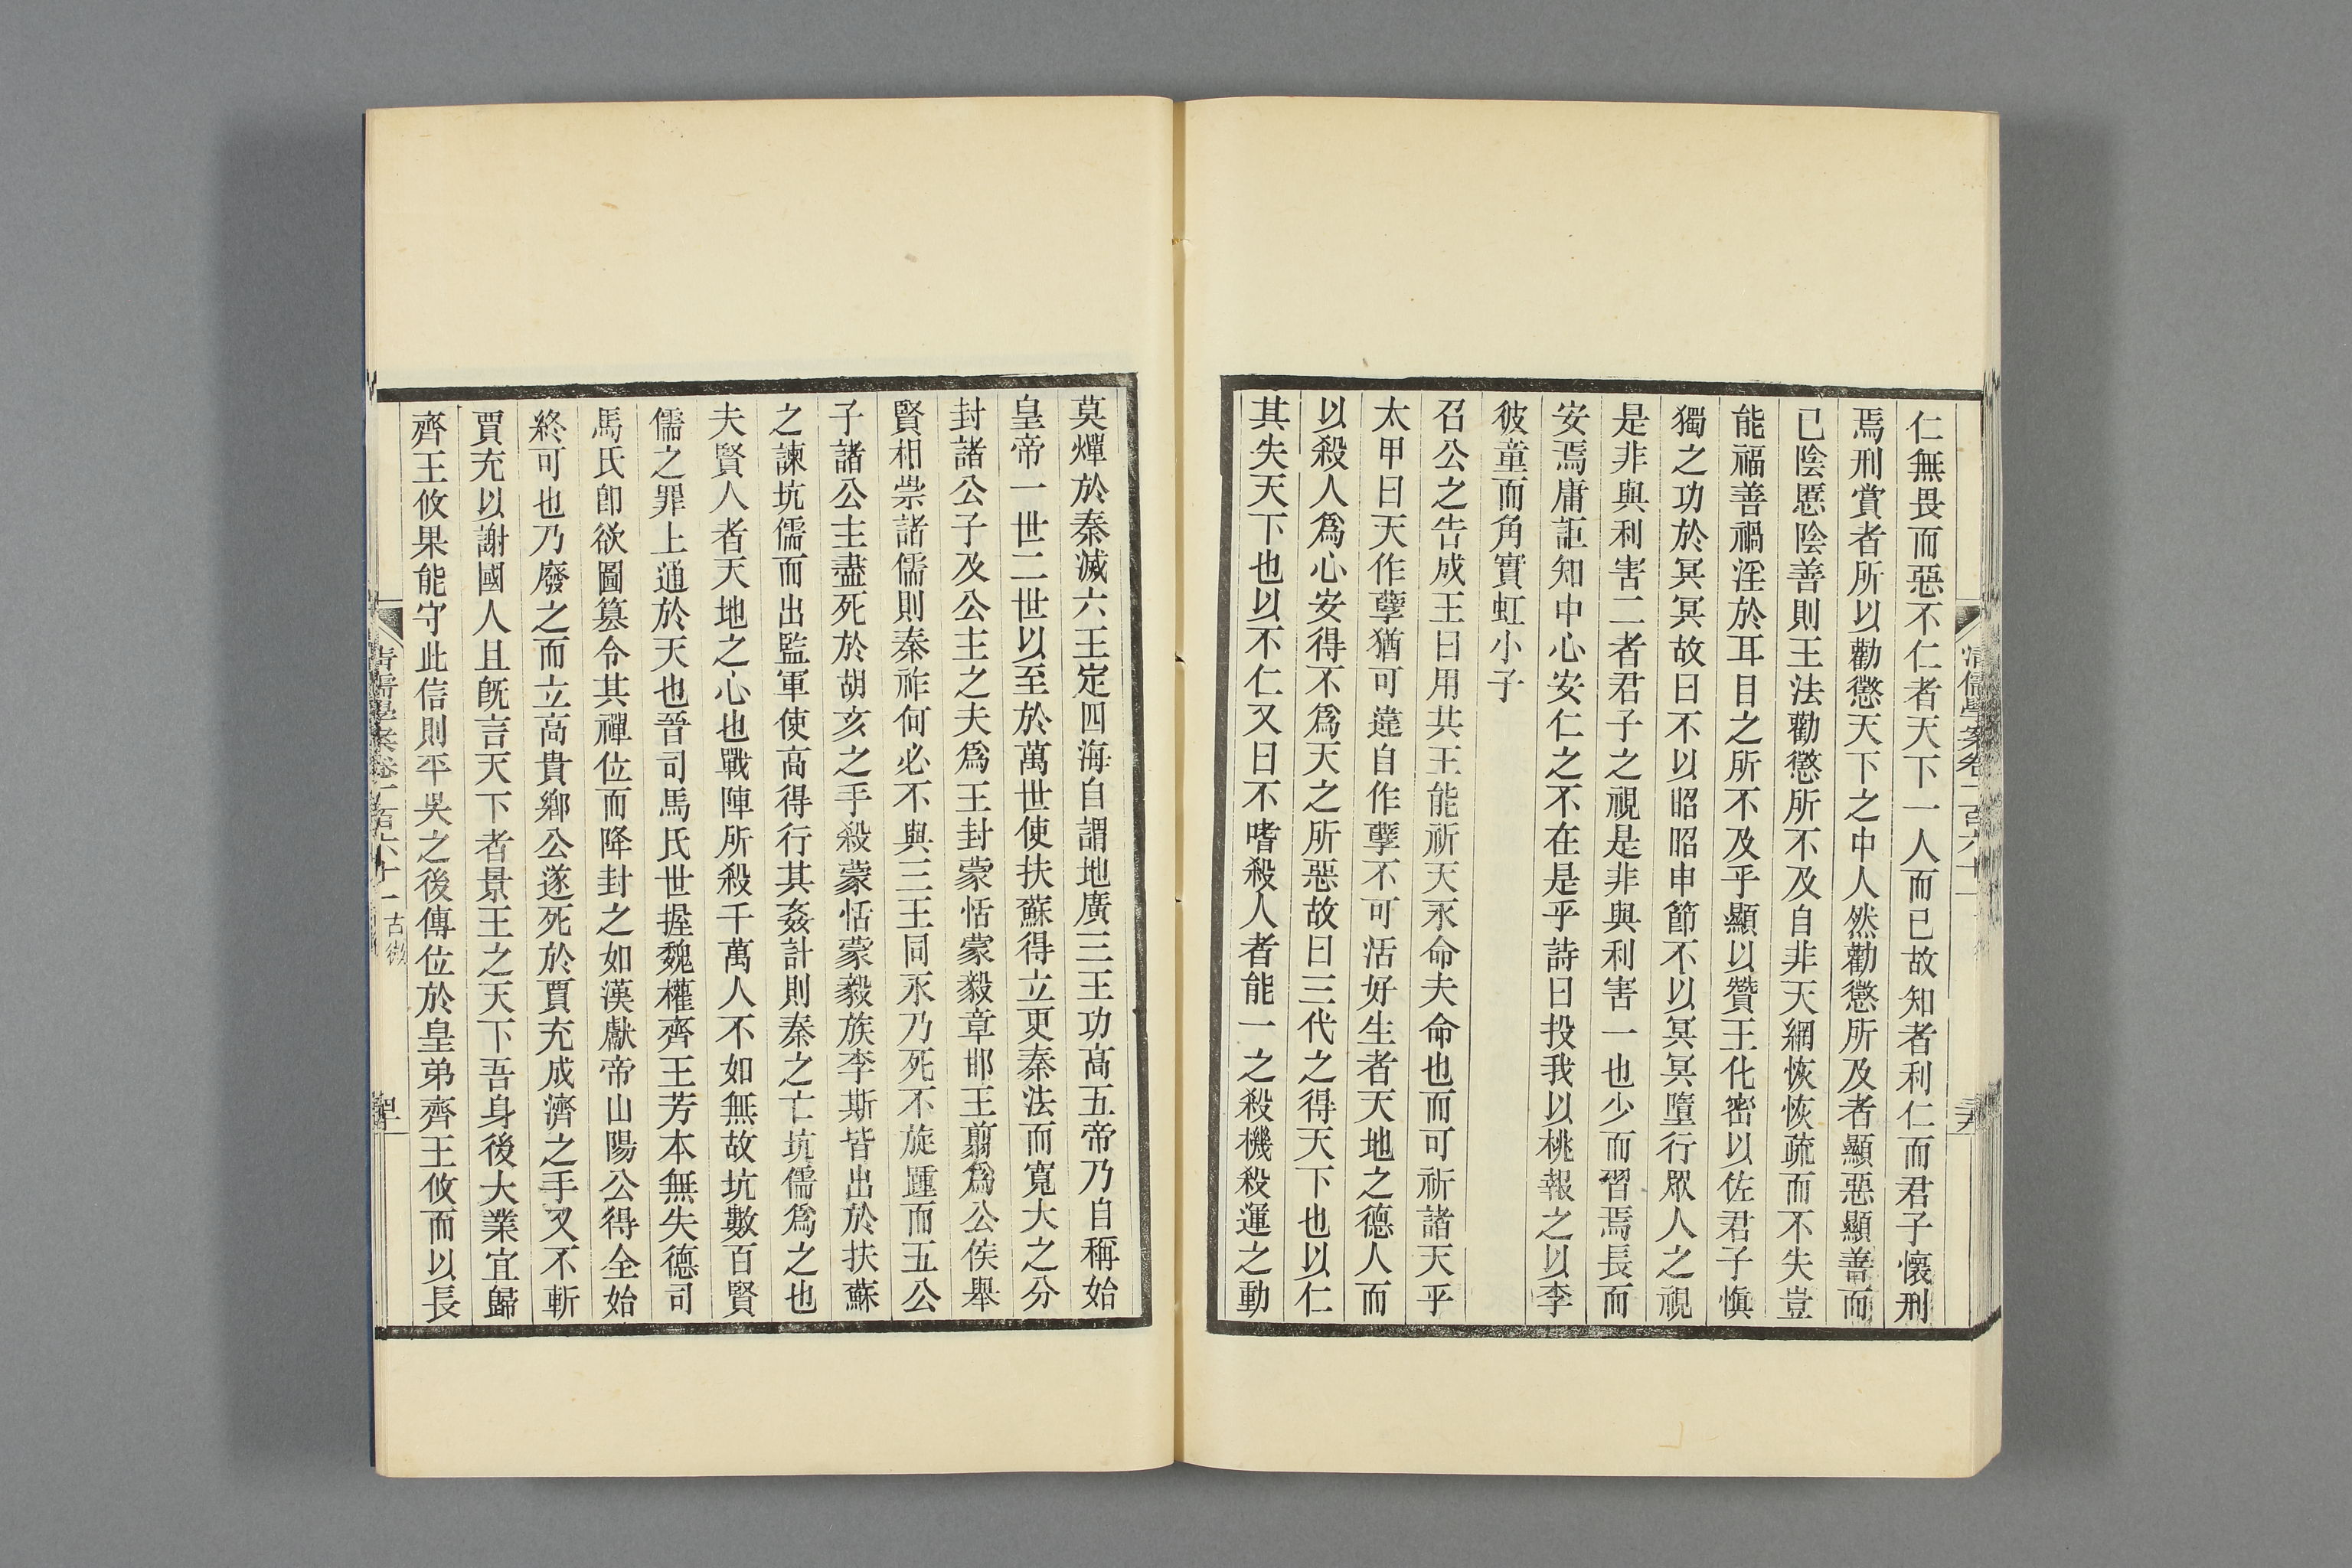 仁無畏而惡不仁者天下一人而已故知者利仁而君子懷刑
焉刑賞者所以勸懲天下之中人然勸懲所及者顯惡顯善而
已陰慝陰善則王法勸懲所不及自非天網恢恢疏而不失豈
能福善禍淫於耳目之所不及乎顯以贊王化密以佐君子愼
獨之功於冥冥故曰不以昭昭申節不以冥冥墮行眾人之視
是非與利害二者君子之視是非與利害一也少而習焉長而
安焉庸詎知中心安仁之不在是乎詩曰投我以桃報之以李
彼童而角實虹小子
召公之告成王曰用共王能祈天永命夫命也而可祈諸天乎
太甲曰天作孽猶可違自作孽不可活好生者天地之德人而
以殺人爲心安得不爲天之所惡故曰三代之得天下也以仁
其失天下也以不仁又曰不嗜殺人者能一之殺機殺運之動
莫燀於秦滅六王定四海自謂地廣三王功高五帝乃自稱始
皇帝一世二世以至於萬世使扶蘇得立更秦法而寬大之分
封諸公子及公主之夫爲王封蒙恬蒙毅章邯王翦爲公侯舉
賢相崇諸儒則秦祚何必不與三王同永乃死不旋踵而五公
子諸公主盡死於胡亥之手殺蒙恬蒙毅族李斯皆出於扶蘇
之諫坑儒而出監軍使高得行其姦計則秦之亡坑儒爲之也
夫賢人者天地之心也戰陣所殺千萬人不如無故坑數百賢
儒之罪上通於天也晉司馬氏世握魏權齊王芳本無失德司
馬氏卽欲圖篡令其禪位而降封之如漢獻帝山陽公得全始
終可也乃廢之而立高貴鄉公遂死於賈充成濟之手又不斬
賈充以謝國人且旣言天下者景王之天下吾身後大業宜歸
齊王攸果能守此信則平吳之後傳位於皇弟齊王攸而以長
清儒學案卷一百六十一
古微